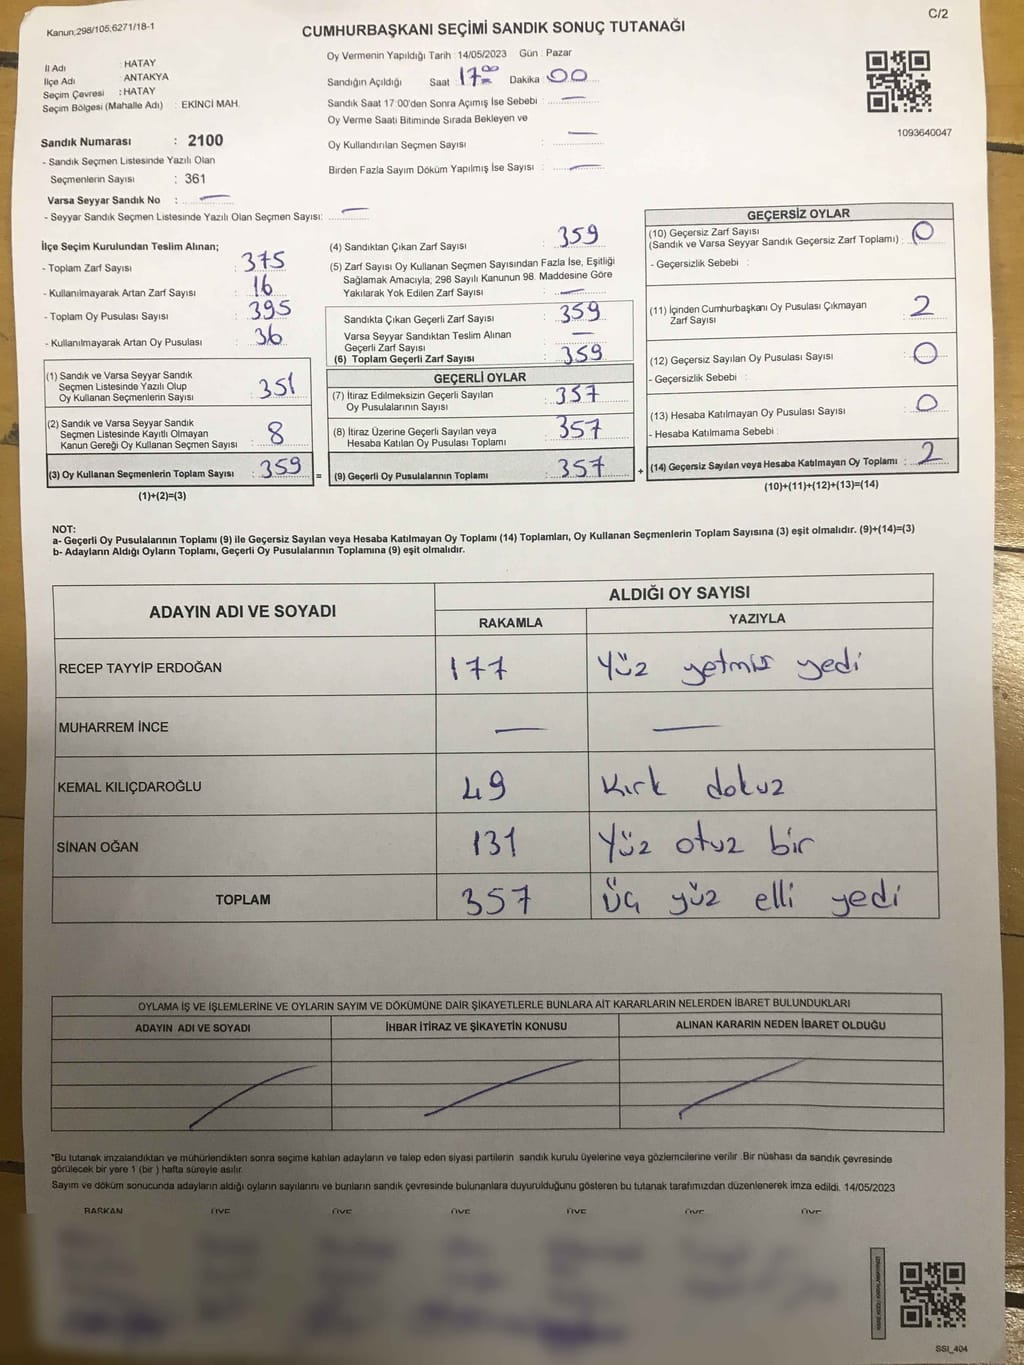 Kanun:298/105,6271/18-1
C/2
CUMHURBAŞKANI SEÇİMİ SANDIK SONUÇ TUTANAĞI
İl Adı : HATAY
İlçe Adı : ANTAKYA
Seçim Çevresi : HATAY
Seçim Bölgesi (Mahalle Adı) : EKİNCİ MAH.
Oy Vermenin Yapıldığı Tarih : 14/05/2023 Gün : Pazar
Sandığın Açıldığı Saat : 17 00 Dakika : 00
Sandık Saat 17:00'den Sonra Açımış İse Sebebi : —
Oy Verme Saati Bitiminde Sırada Bekleyen ve
Oy Kullandırılan Seçmen Sayısı : —
Birden Fazla Sayım Döküm Yapılmış İse Sayısı : —
1093640047
Sandık Numarası : 2100
- Sandık Seçmen Listesinde Yazılı Olan
Seçmenlerin Sayısı : 361
Varsa Seyyar Sandık No : —
- Seyyar Sandık Seçmen Listesinde Yazılı Olan Seçmen Sayısı: —
İlçe Seçim Kurulundan Teslim Alınan;
- Toplam Zarf Sayısı : 375
- Kullanılmayarak Artan Zarf Sayısı : 16
- Toplam Oy Pusulası Sayısı : 395
- Kullanılmayarak Artan Oy Pusulası : 36
(1) Sandık ve Varsa Seyyar Sandık
Seçmen Listesinde Yazılı Olup
Oy Kullanan Seçmenlerin Sayısı : 351
(2) Sandık ve Varsa Seyyar Sandık
Seçmen Listesinde Kayıtlı Olmayan
Kanun Gereği Oy Kullanan Seçmen Sayısı : 8
(3) Oy Kullanan Seçmenlerin Toplam Sayısı : 359 =
(1)+(2)=(3)
(4) Sandıktan Çıkan Zarf Sayısı : 359
(5) Zarf Sayısı Oy Kullanan Seçmen Sayısından Fazla İse, Eşitliği
Sağlamak Amacıyla, 298 Sayılı Kanunun 98. Maddesine Göre
Yakılarak Yok Edilen Zarf Sayısı : —
Sandıkta Çıkan Geçerli Zarf Sayısı : 359
Varsa Seyyar Sandıktan Teslim Alınan
Geçerli Zarf Sayısı : —
(6) Toplam Geçerli Zarf Sayısı : 359
GEÇERLİ OYLAR
(7) İtiraz Edilmeksizin Geçerli Sayılan
Oy Pusulalarının Sayısı : 357
(8) İtiraz Üzerine Geçerli Sayılan veya
Hesaba Katılan Oy Pusulası Toplamı : 357
(9) Geçerli Oy Pusulalarının Toplamı : 357 +
GEÇERSİZ OYLAR
(10) Geçersiz Zarf Sayısı
(Sandık ve Varsa Seyyar Sandık Geçersiz Zarf Toplamı) : 0
- Geçersizlik Sebebi :
(11) İçinden Cumhurbaşkanı Oy Pusulası Çıkmayan
Zarf Sayısı : 2
(12) Geçersiz Sayılan Oy Pusulası Sayısı : 0
- Geçersizlik Sebebi :
(13) Hesaba Katılmayan Oy Pusulası Sayısı : 0
- Hesaba Katılmama Sebebi :
(14) Geçersiz Sayılan veya Hesaba Katılmayan Oy Toplamı : 2
(10)+(11)+(12)+(13)=(14)
NOT:
a- Geçerli Oy Pusulalarının Toplamı (9) ile Geçersiz Sayılan veya Hesaba Katılmayan Oy Toplamı (14) Toplamları, Oy Kullanan Seçmenlerin Toplam Sayısına (3) eşit olmalıdır. (9)+(14)=(3)
b- Adayların Aldığı Oyların Toplamı, Geçerli Oy Pusulalarının Toplamına (9) eşit olmalıdır.
ADAYIN ADI VE SOYADI
ALDIĞI OY SAYISI
RAKAMLA YAZIYLA
RECEP TAYYİP ERDOĞAN 177 Yüz yetmiş yedi
MUHARREM İNCE — —
KEMAL KILIÇDAROĞLU 49 Kırk dokuz
SİNAN OĞAN 131 Yüz otuz bir
TOPLAM 357 Üç yüz elli yedi
OYLAMA İŞ VE İŞLEMLERİNE VE OYLARIN SAYIM VE DÖKÜMÜNE DAİR ŞİKAYETLERLE BUNLARA AİT KARARLARIN NELERDEN İBARET BULUNDUKLARI
ADAYIN ADI VE SOYADI İHBAR İTİRAZ VE ŞİKAYETİN KONUSU ALINAN KARARIN NEDEN İBARET OLDUĞU
*Bu tutanak imzalandıktan ve mühürlendikten sonra seçime katılan adayların ve talep eden siyasi partilerin sandık kurulu üyelerine veya gözlemcilerine verilir .Bir nüshası da sandık çevresinde
görülecek bir yere 1 (bir ) hafta süreyle asılır.
Sayım ve döküm sonucunda adayların aldığı oyların sayılarını ve bunların sandık çevresinde bulunanlara duyurulduğunu gösteren bu tutanak tarafımızdan düzenlenerek imza edildi. 14/05/2023
BAŞKAN ÜYE ÜYE ÜYE ÜYE ÜYE ÜYE
SSI_404